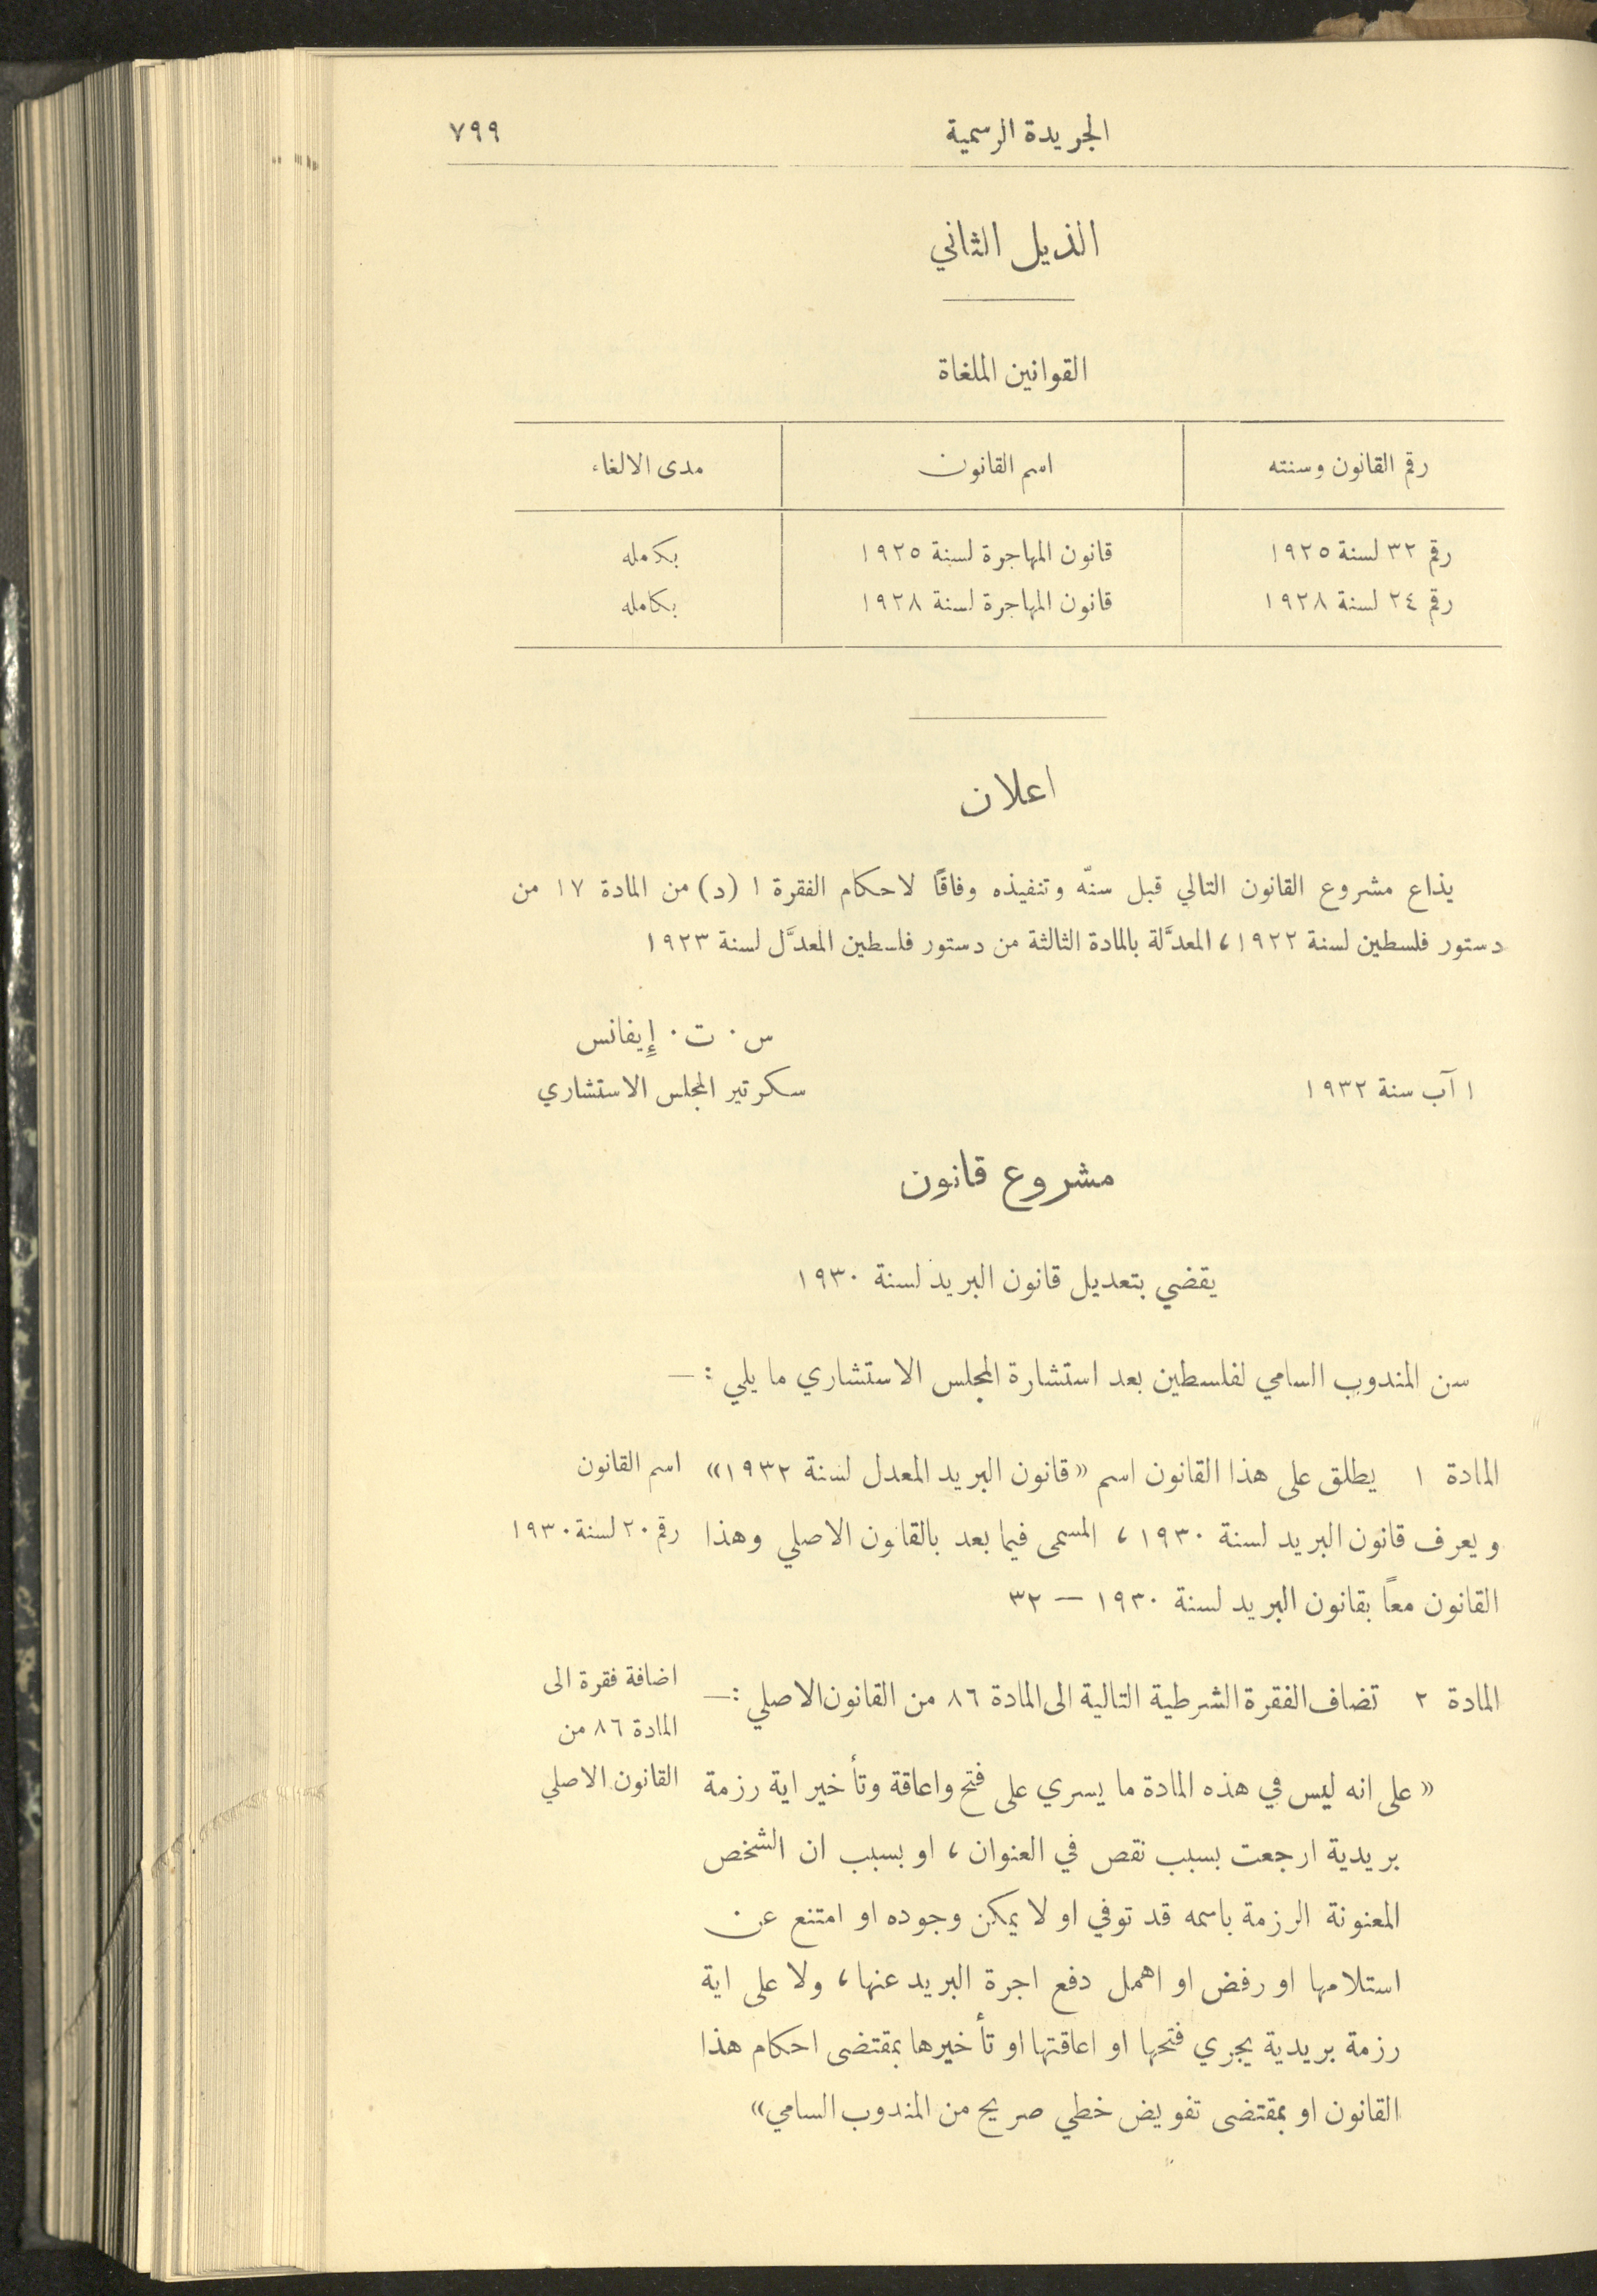 الجريدة الرسمية ٧٩٩
الذيل الثاني
القوانين الملغاة
رقم القانون وسنته اسم القانون مدى الالغاء
رقم ٣٢ لسنة ١٩٢٥ قانون المهاجرة لسنة ١٩٢٥ بكامله
رقم ٢٤ لسنة ١٩٢٨ قانون المهاجرة لسنة ١٩٢٨ بكامله
اعلان
يذاع مشروع القانون التالي قبل سنّه وتنفيذه وفاقًا لاحكام الفقرة ١ (د) من المادة ١٧ من
دستور فلسطين لسنة ١٩٢٢، المعدَّلة بالمادة الثالثة من دستور فلسطين المعدَّل لسنة ١٩٢٣
س. ت. إيفانس
١ آب سنة ١٩٣٢ سكرتير المجلس الاستشاري
مشروع قانون
يقضي بتعديل قانون البريد لسنة ١٩٣٠
سن المندوب السامي لفلسطين بعد استشارة المجلس الاستشاري ما يلي :—
المادة ١ يطلق على هذا القانون اسم «قانون البريد المعدل لسنة ١٩٣٢» اسم القانون
ويعرف قانون البريد لسنة ١٩٣٠، المسمى فيما بعد بالقانون الاصلي وهذا رقم ٢٠ لسنة ١٩٣٠
القانون معاً بقانون البريد لسنة ١٩٣٠ — ٣٢
المادة ٢ تضاف الفقرة الشرطية التالية الى المادة ٨٦ من القانون الاصلي :—
اضافة فقرة الى
المادة ٨٦ من
القانون الاصلي
« على انه ليس في هذه المادة ما يسري على فتح واعاقة وتأخير اية رزمة
بريدية ارجعت بسبب نقص في العنوان، او بسبب ان الشخص
المعنونة الرزمة باسمه قد توفي او لا يمكن وجوده او امتنع عن
استلامها او رفض او اهمل دفع اجرة البريد عنها، ولا على اية
رزمة بريدية يجري فتحها او اعاقتها او تأخيرها بمقتضى احكام هذا
القانون او بمقتضى تفويض خطي صريح من المندوب السامي»